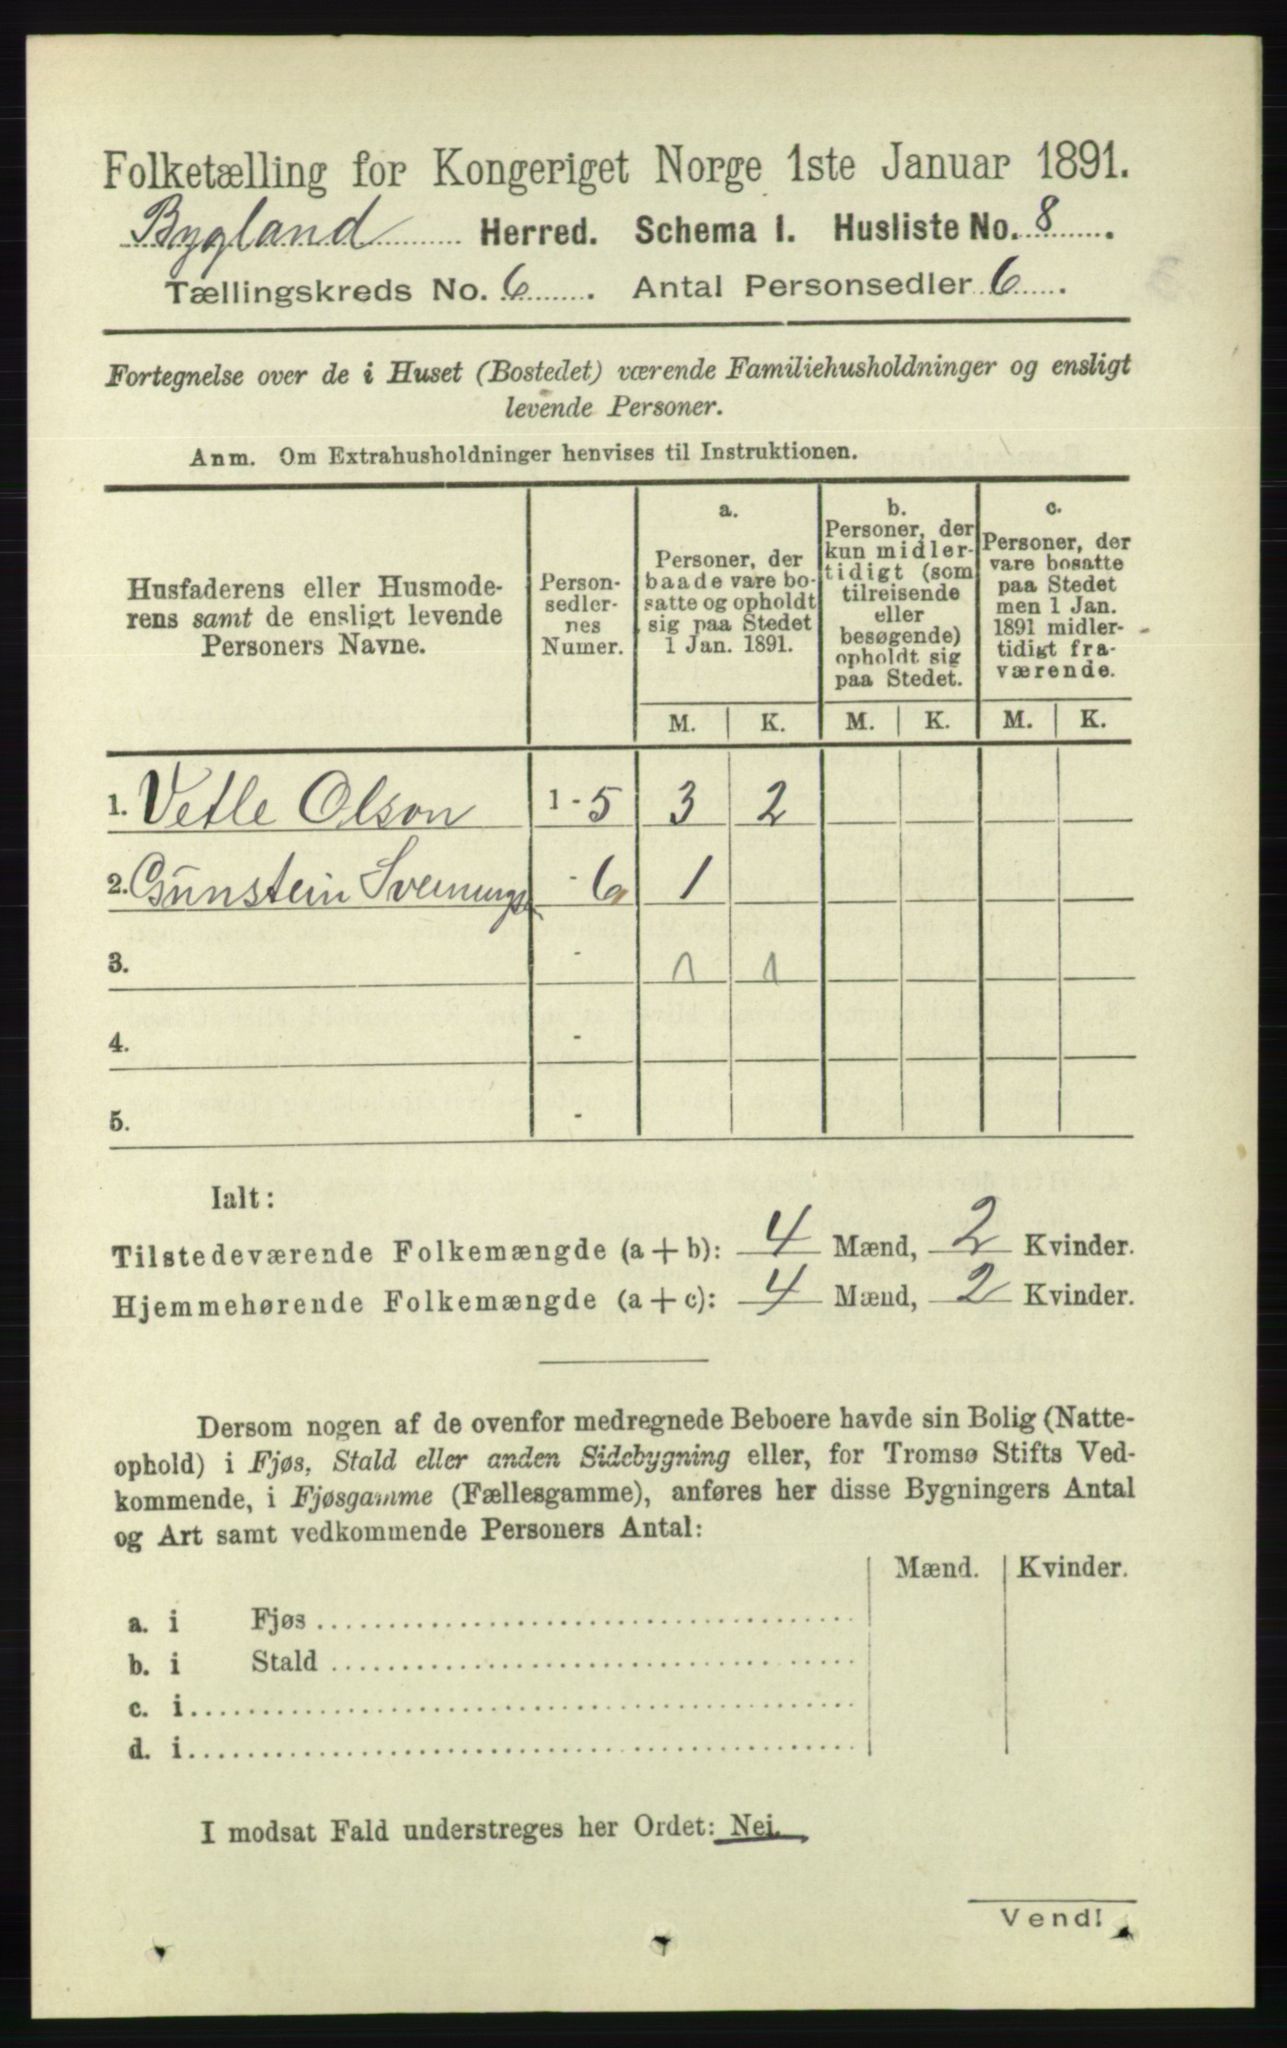 Folketælling for Kongeriget Norge 1ste Januar 1891.
Bygland Herred. Schema I. Husliste No. 8.
Tællingskreds No. 6. Antal Personsedler 6.
Fortegnelse over de i Huset (Bostedet) værende Familiehusholdninger og ensligt
levende Personer.
Anm. Om Extrahusholdninger henvises til Instruktionen.
Husfaderens eller Husmode-
rens samt de ensligt levende
Personers Navne.
Person-
sedler-
nes
Numer.
a.
Personer, der
baade vare bo-
satte og opholdt
sig paa Stedet
1 Jan. 1891.
b.
Personer, der
kun midler-
tidigt (som
tilreisende
eller
besøgende)
opholdt sig
paa Stedet.
c.
Personer, der
vare bosatte
paa Stedet
men 1 Jan.
1891 midler-
tidigt fra-
værende.
M. K. M. K. M. K.
1. Vetle Olson 1 - 5 3 2
2. Gunstein Svenungs - 6 1
3. - 1 1
4. -
5. -
Ialt:
Tilstedeværende Folkemængde (a + b): 4 Mænd, 2 Kvinder.
Hjemmehørende Folkemængde (a + c): 4 Mænd, 2 Kvinder.
Dersom nogen af de ovenfor medregnede Beboere havde sin Bolig (Natte-
ophold) i Fjøs, Stald eller anden Sidebygning eller, for Tromsø Stifts Ved-
kommende, i Fjøsgamme (Fællesgamme), anføres her disse Bygningers Antal
og Art samt vedkommende Personers Antal:
Mænd. Kvinder.
a. i Fjøs
b. i Stald
c. i
d. i
I modsat Fald understreges her Ordet: Nei.
Vend!